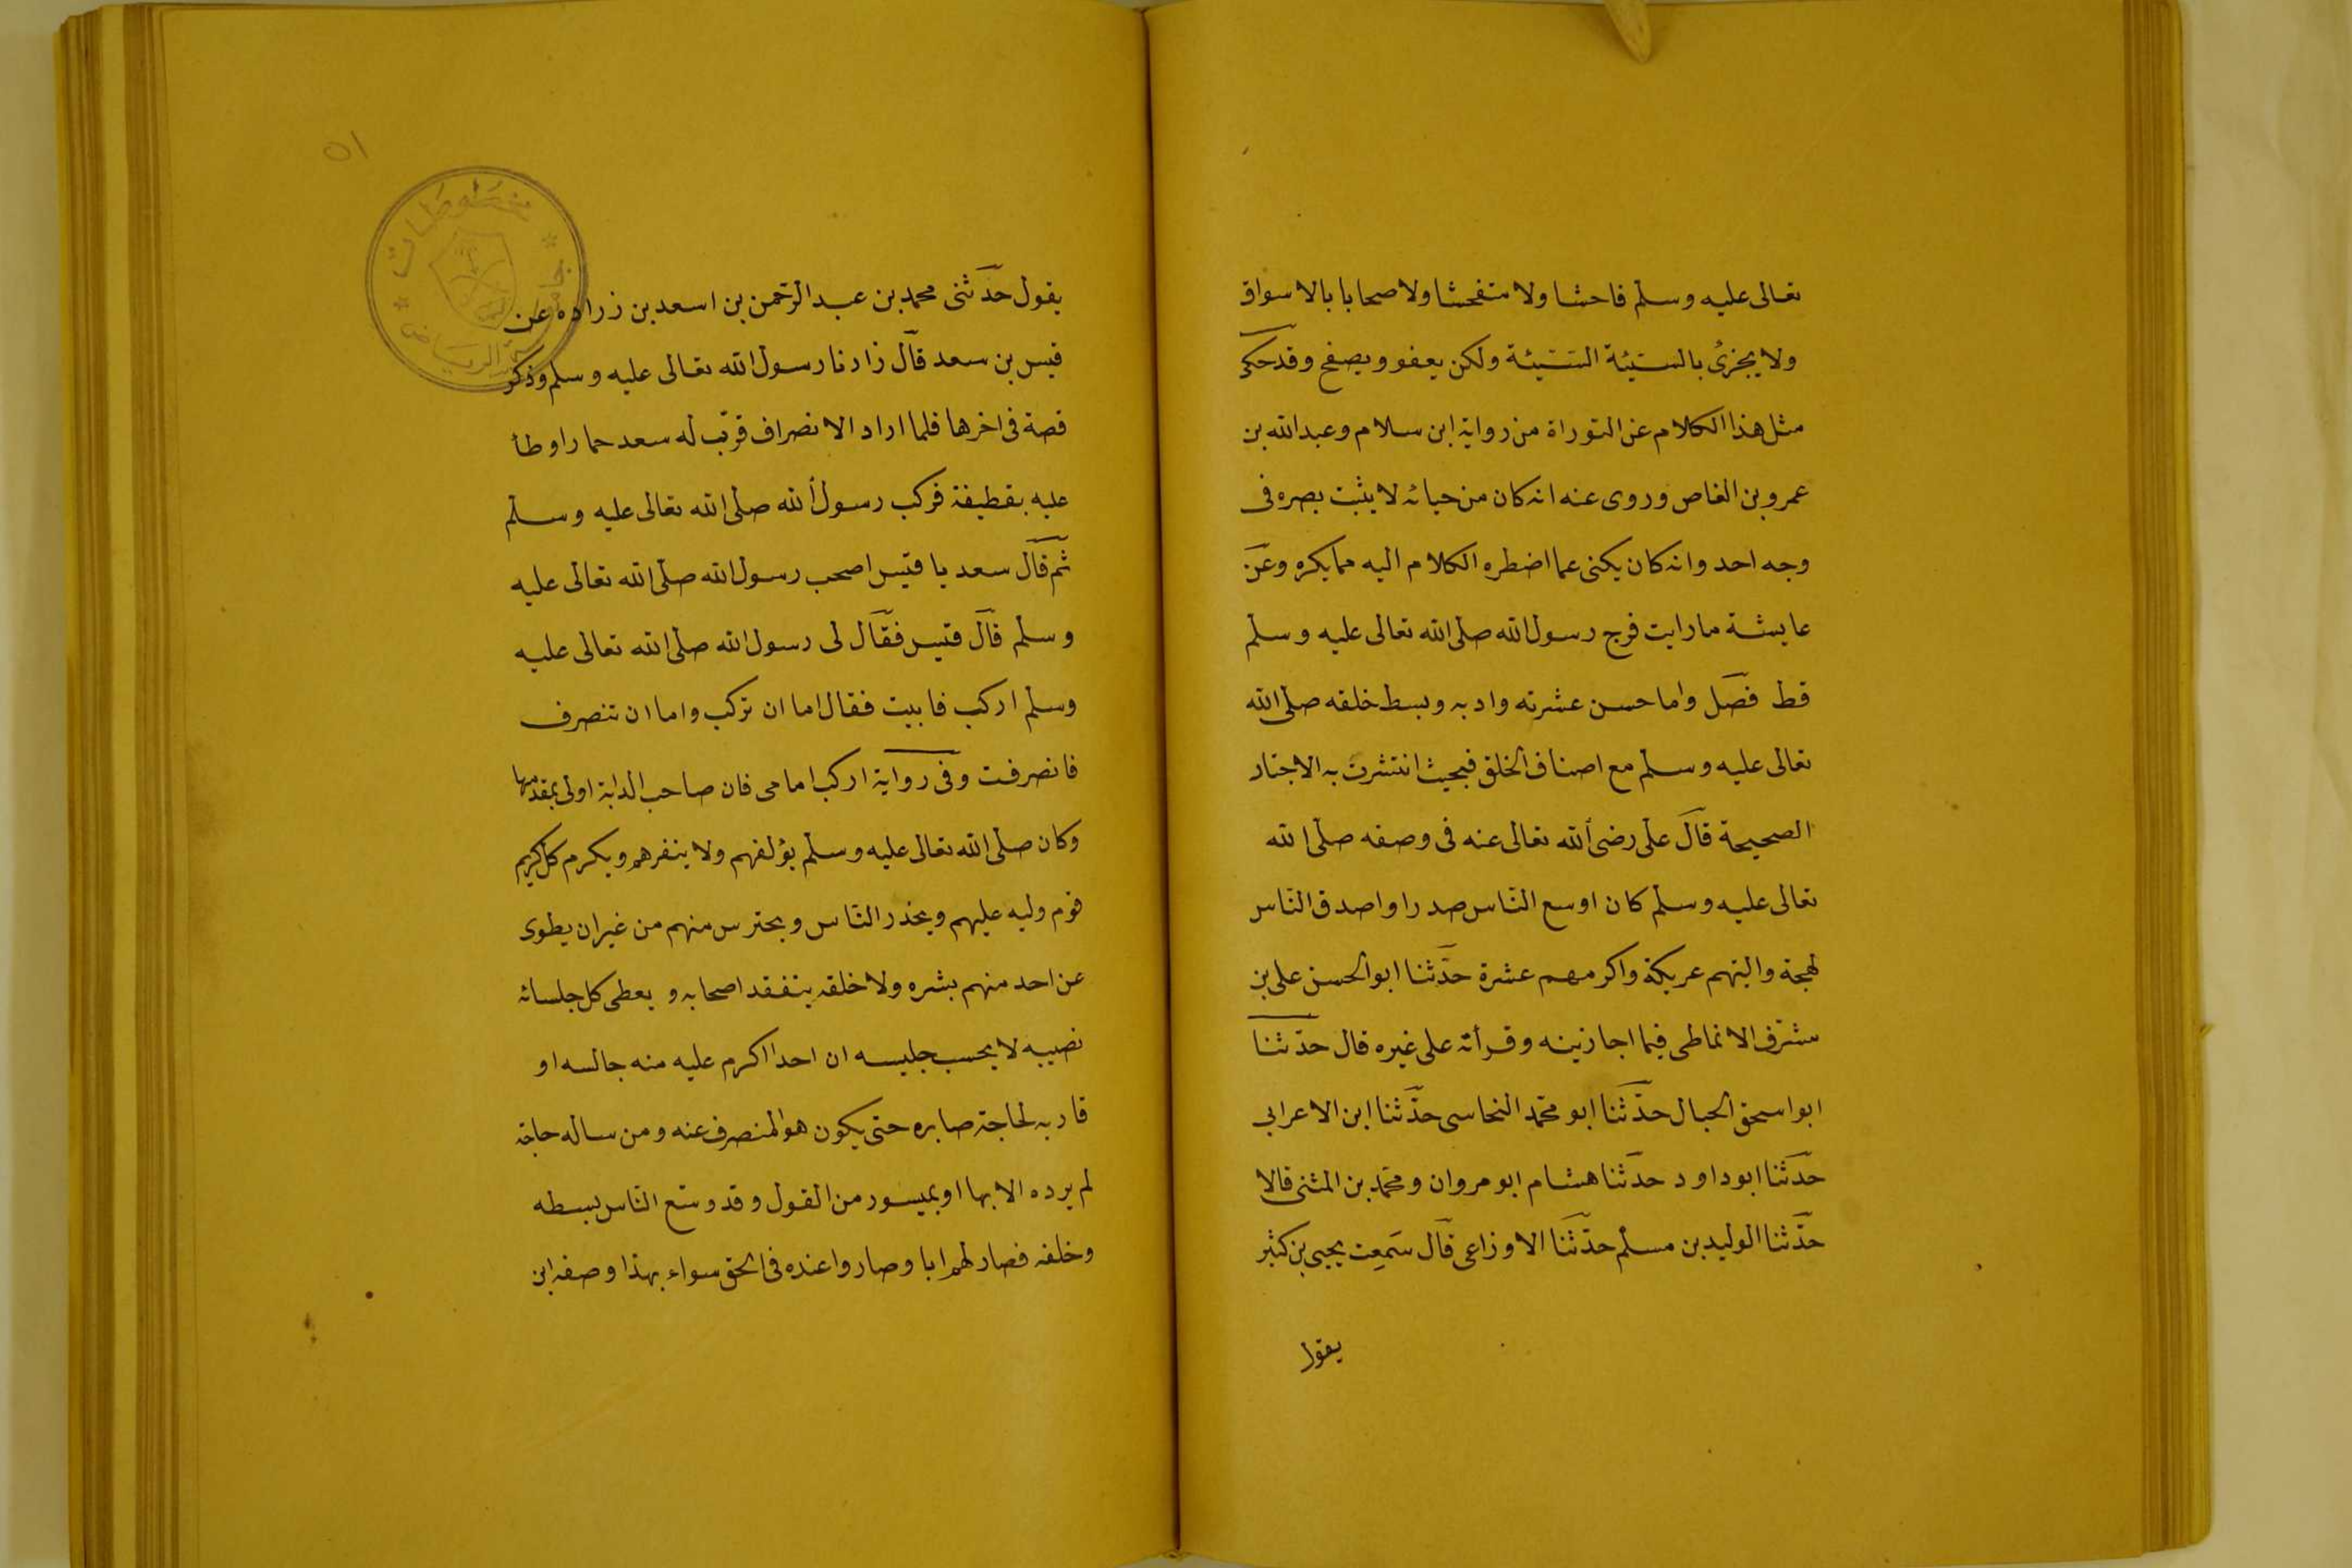 تعالى عليه وسلم فاحشا ولا متفحشا ولا صحابا بالاسواق
ولا يجزئ بالسيئة السيئة ولكن يعفو ويصفح وقد حكى
مثل هذا الكلام عن التوراة من رواية ابن سلام وعبد الله بن
عمرو بن العاص وروى عنه انه كان من حيائه لا يثبت بصره فى
وجه احد وانه كان يكنى عما اضطره الكلام اليه مما يكره وعن
عايشة ما رايت فرج رسول الله صلى الله تعالى عليه وسلم
قط فصل واما حسن عشرته وادبه وبسط خلقه صلى الله
تعالى عليه وسلم مع اصناف الخلق فبحيث انتشرت به الاخبار
الصحيحة قال على رضى الله تعالى عنه فى وصفه صلى الله
تعالى عليه وسلم كان اوسع الناس صدرا واصدق الناس
لهجة والينهم عريكة واكرمهم عشرة حدثنا ابو الحسن على بن
مشرف الانماطى فيما اجازنيه وقرأته على غيره قال حدثنا
ابو اسحق الحبال حدثنا ابو محمد النحاسى حدثنا ابن الاعرابى
حدثنا ابو داود حدثنا هشام ابو مروان ومحمد بن المثنى قالا
حدثنا الوليد بن مسلم حدثنا الاوزاعى قال سمعت يحيى بن كثير
يقول
٥١
مخطوطات
جامعة الرياض
يقول حدثنى محمد بن عبد الرحمن بن اسعد بن زراده عن
قيس بن سعد قال زادنا رسول الله تعالى عليه وسلم وذكر
قصة فى اخرها فلما اراد الانصراف قرب له سعد حمارا وطأ
عليه بقطيفة فركب رسول الله صلى الله تعالى عليه وسلم
ثم قال سعد يا قيس اصحب رسول الله صلى الله تعالى عليه
وسلم قال قيس فقال لى رسول الله صلى الله تعالى عليه
وسلم اركب فابيت فقال اما ان تركب واما ان تنصرف
فانصرفت وفى رواية اركب امامى فان صاحب الدابة اولى بمقدمها
وكان صلى الله تعالى عليه وسلم يؤلفهم ولا ينفرهم ويكرم كل كريم
قوم وليه عليهم ويحذر الناس ويحترس منهم من غير ان يطوى
عن احد منهم بشره ولا خلقه يتفقد اصحابه و يعطى كل جلسائه
نصيبه لا يحسب جليسه ان احدا اكرم عليه منه جالسه او
قاربه لحاجة صابره حتى يكون هو المنصرف عنه ومن ساله حاجة
لم يرده الا بها او بميسور من القول وقد وسع الناس بسطه
وخلقه فصار لهم ابا وصاروا عنده فى الحق سواء بهذا وصفه ابن